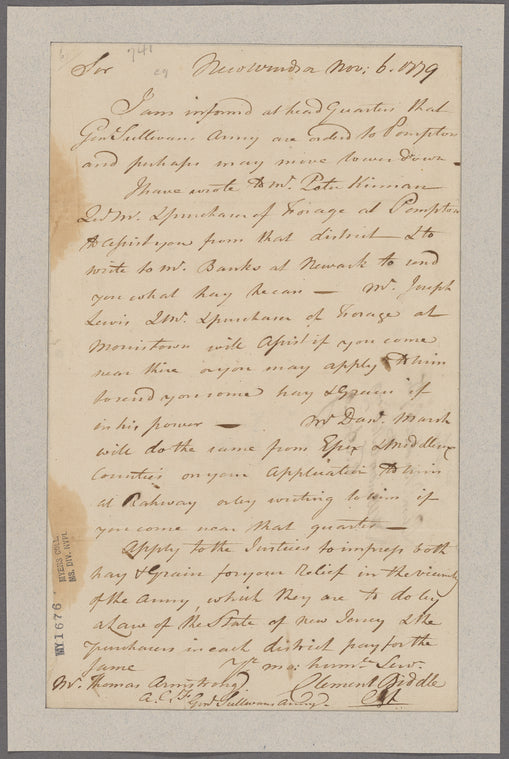 741
Sir New Windsor Nov: 6. 1779
I am informed at head Quarters that
Genl Sullivans Army are orderd to Pompton
and perhaps may move lower down
I have wrote to Mr. Peter Kinnan
Qr Mr. & purchaser of Forage at Pompton
to assist you from that district & to
write to Mr. Banks at Newark to send
you what hay he can — Mr. Joseph
Lewis QMr. & purchaser of Forage at
Morristown will assist if you come
near there or you may apply to him
to send you some hay & Grain if
in his power — Mr Danl. Marsh
will do the same from Essex & Middlesex
Counties on your Application to him
at Rahway or by writing to him if
you come near that quarter —
Apply to the Justices to impress both
hay & Grain for your relief in the vicinity
of the Army, which they are to do by
a Law of the State of New Jersey & the
purchasers in each district pay for the
same Yr mo: humle Serv.
Mr. Thomas Armstrong Clement Biddle
A. C. F. Genl Sullivans Army
MYERS COLL.
MS. DIV. NYPL
MY1676